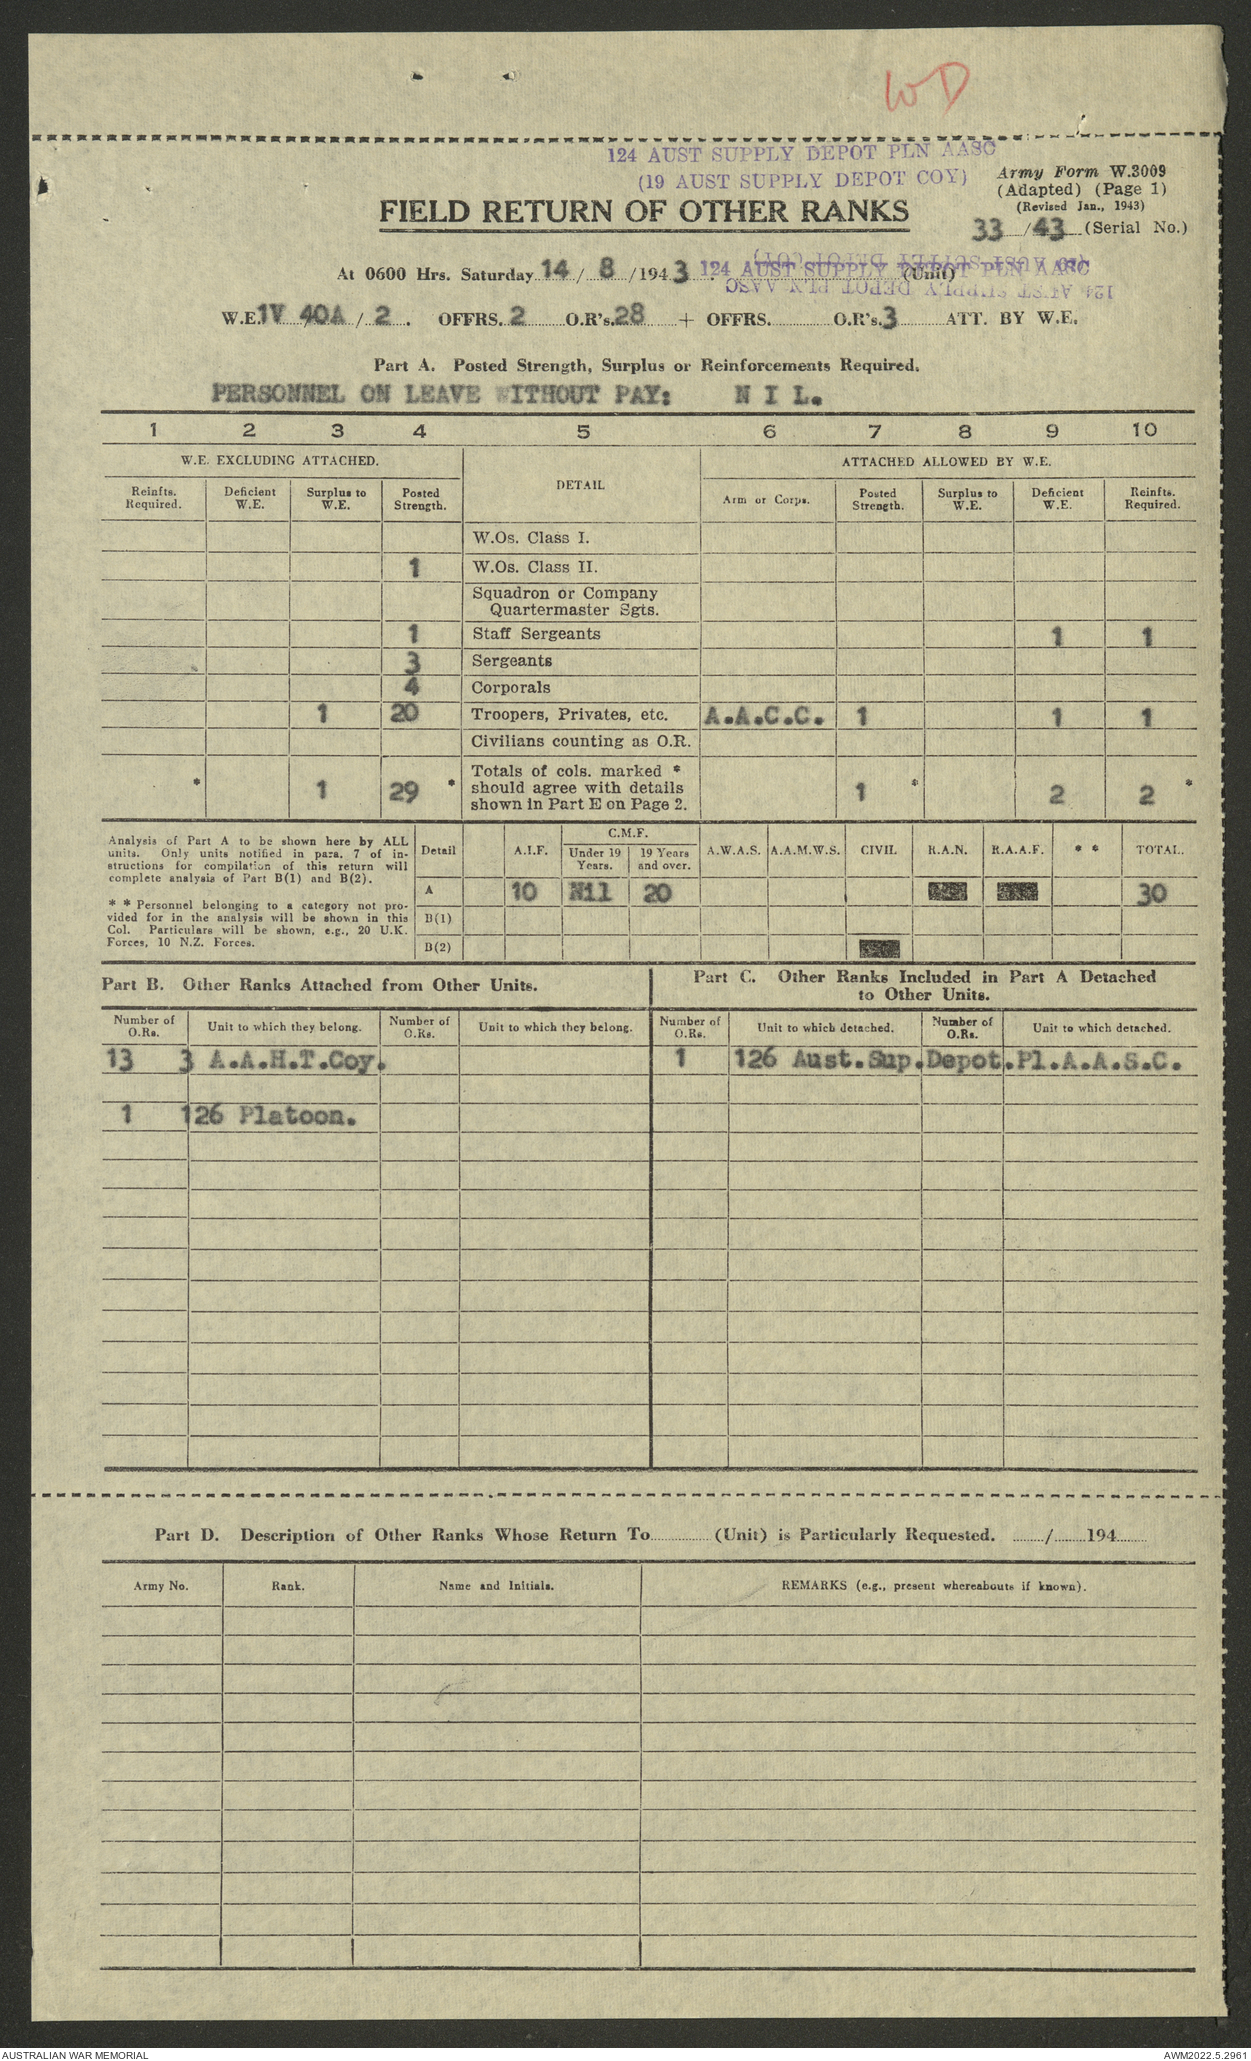 WD
124 AUST SUPPLY DEPOT PLN AASC
(19 AUST SUPPLY DEPOT COY)
Army Form W.3009
(Adapted) (Page 1)
(Revised Jan., 1943)
FIELD RETURN OF OTHER RANKS
33 /43 (Serial No.)
At 0600 Hrs. Saturday 14 / 8 /1943 124 AUST SUPPLY DEPOT PLN AASC (Unit)
(19 AUST SUPPLY DEPOT COY)
124 AUST SUPPLY DEPOT PLN AASC
W.E. 1V 40A / 2 . OFFRS. 2 O.R's. 28 + OFFRS. O.R's. 3 ATT. BY W.E.
Part A. Posted Strength, Surplus or Reinforcements Required.
PERSONNEL ON LEAVE WITHOUT PAY: N I L.
1 2 3 4 5 6 7 8 9 10
W.E. EXCLUDING ATTACHED. DETAIL ATTACHED ALLOWED BY W.E.
Reinfts. Required. Deficient W.E. Surplus to W.E. Posted Strength. Arm or Corps. Posted Strength. Surplus to W.E. Deficient W.E. Reinfts. Required.
W.Os. Class I.
1 W.Os. Class II.
Squadron or Company
Quartermaster Sgts.
1 Staff Sergeants 1 1
3 Sergeants
4 Corporals
1 20 Troopers, Privates, etc. A.A.C.C. 1 1 1
Civilians counting as O.R.
* 1 29 * Totals of cols. marked * 1 * 2 2 *
should agree with details
shown in Part E on Page 2.
Analysis of Part A to be shown here by ALL
units. Only units notified in para. 7 of in-
structions for compilation of this return will
complete analysis of Part B(1) and B(2).
* * Personnel belonging to a category not pro-
vided for in the analysis will be shown in this
Col. Particulars will be shown, e.g., 20 U.K.
Forces, 10 N.Z. Forces.
Detail A.I.F. C.M.F. Under 19 Years. 19 Years and over. A.W.A.S. A.A.M.W.S. CIVIL R.A.N. R.A.A.F. * * TOTAL.
A 10 Nil 20 30
B(1)
B(2)
Part B. Other Ranks Attached from Other Units.
Part C. Other Ranks Included in Part A Detached
to Other Units.
Number of O.Rs. Unit to which they belong. Number of O.Rs. Unit to which they belong. Number of O.Rs. Unit to which detached. Number of O.Rs. Unit to which detached.
13 3 A.A.H.T.Coy. 1 126 Aust.Sup.Depot.Pl.A.A.S.C.
1 126 Platoon.
Part D. Description of Other Ranks Whose Return To (Unit) is Particularly Requested. / 194
Army No. Rank. Name and Initials. REMARKS (e.g., present whereabouts if known).
AUSTRALIAN WAR MEMORIAL AWM2022.5.2961